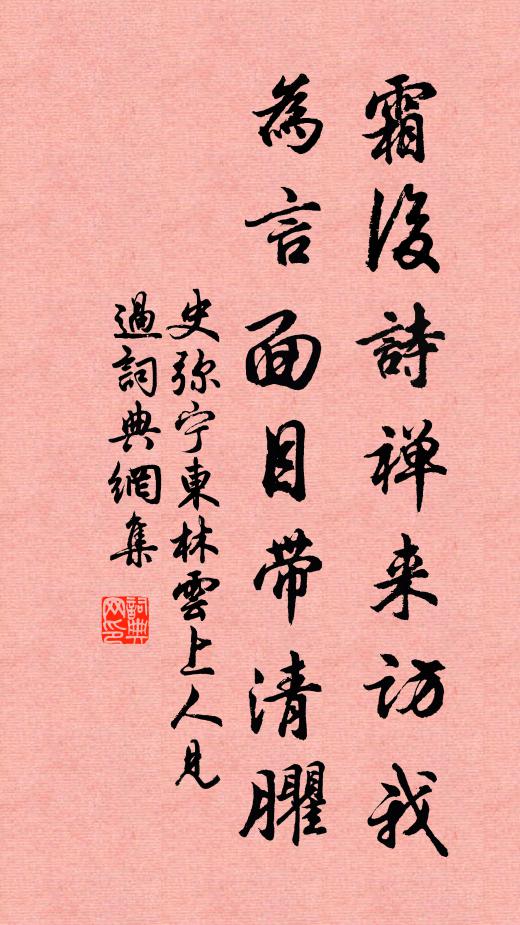 霜後詩禅来访我
為言面目带清臞
史弥宁東林雲上人見
過詞典網集
詞典
网印